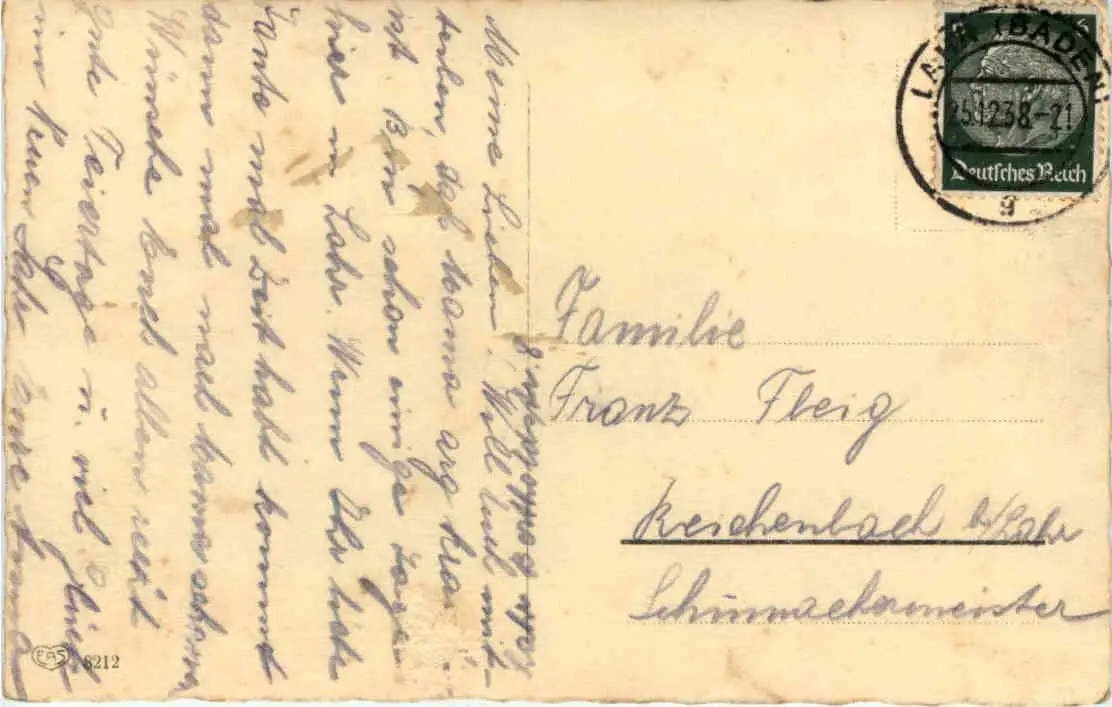 Meine Lieben! Will Euch mit-
teilen, daß Mama arg kra
ist. Bin schon einige Tage
hier in Lahr. Wenn Ihr liebe
Tante mal Zeit habt kommt
dann mal nach Mama schauen
Wünsche Euch allen recht
gute Feiertage u. viel Glück
im Neuen Jahr Eure
LAHR (BADEN)
25.12.38.-21
g
6
Deutsches Reich
Familie
Franz Fleig
Reichenbach b/Lahr
Schuhmachermeister
EAS 8212